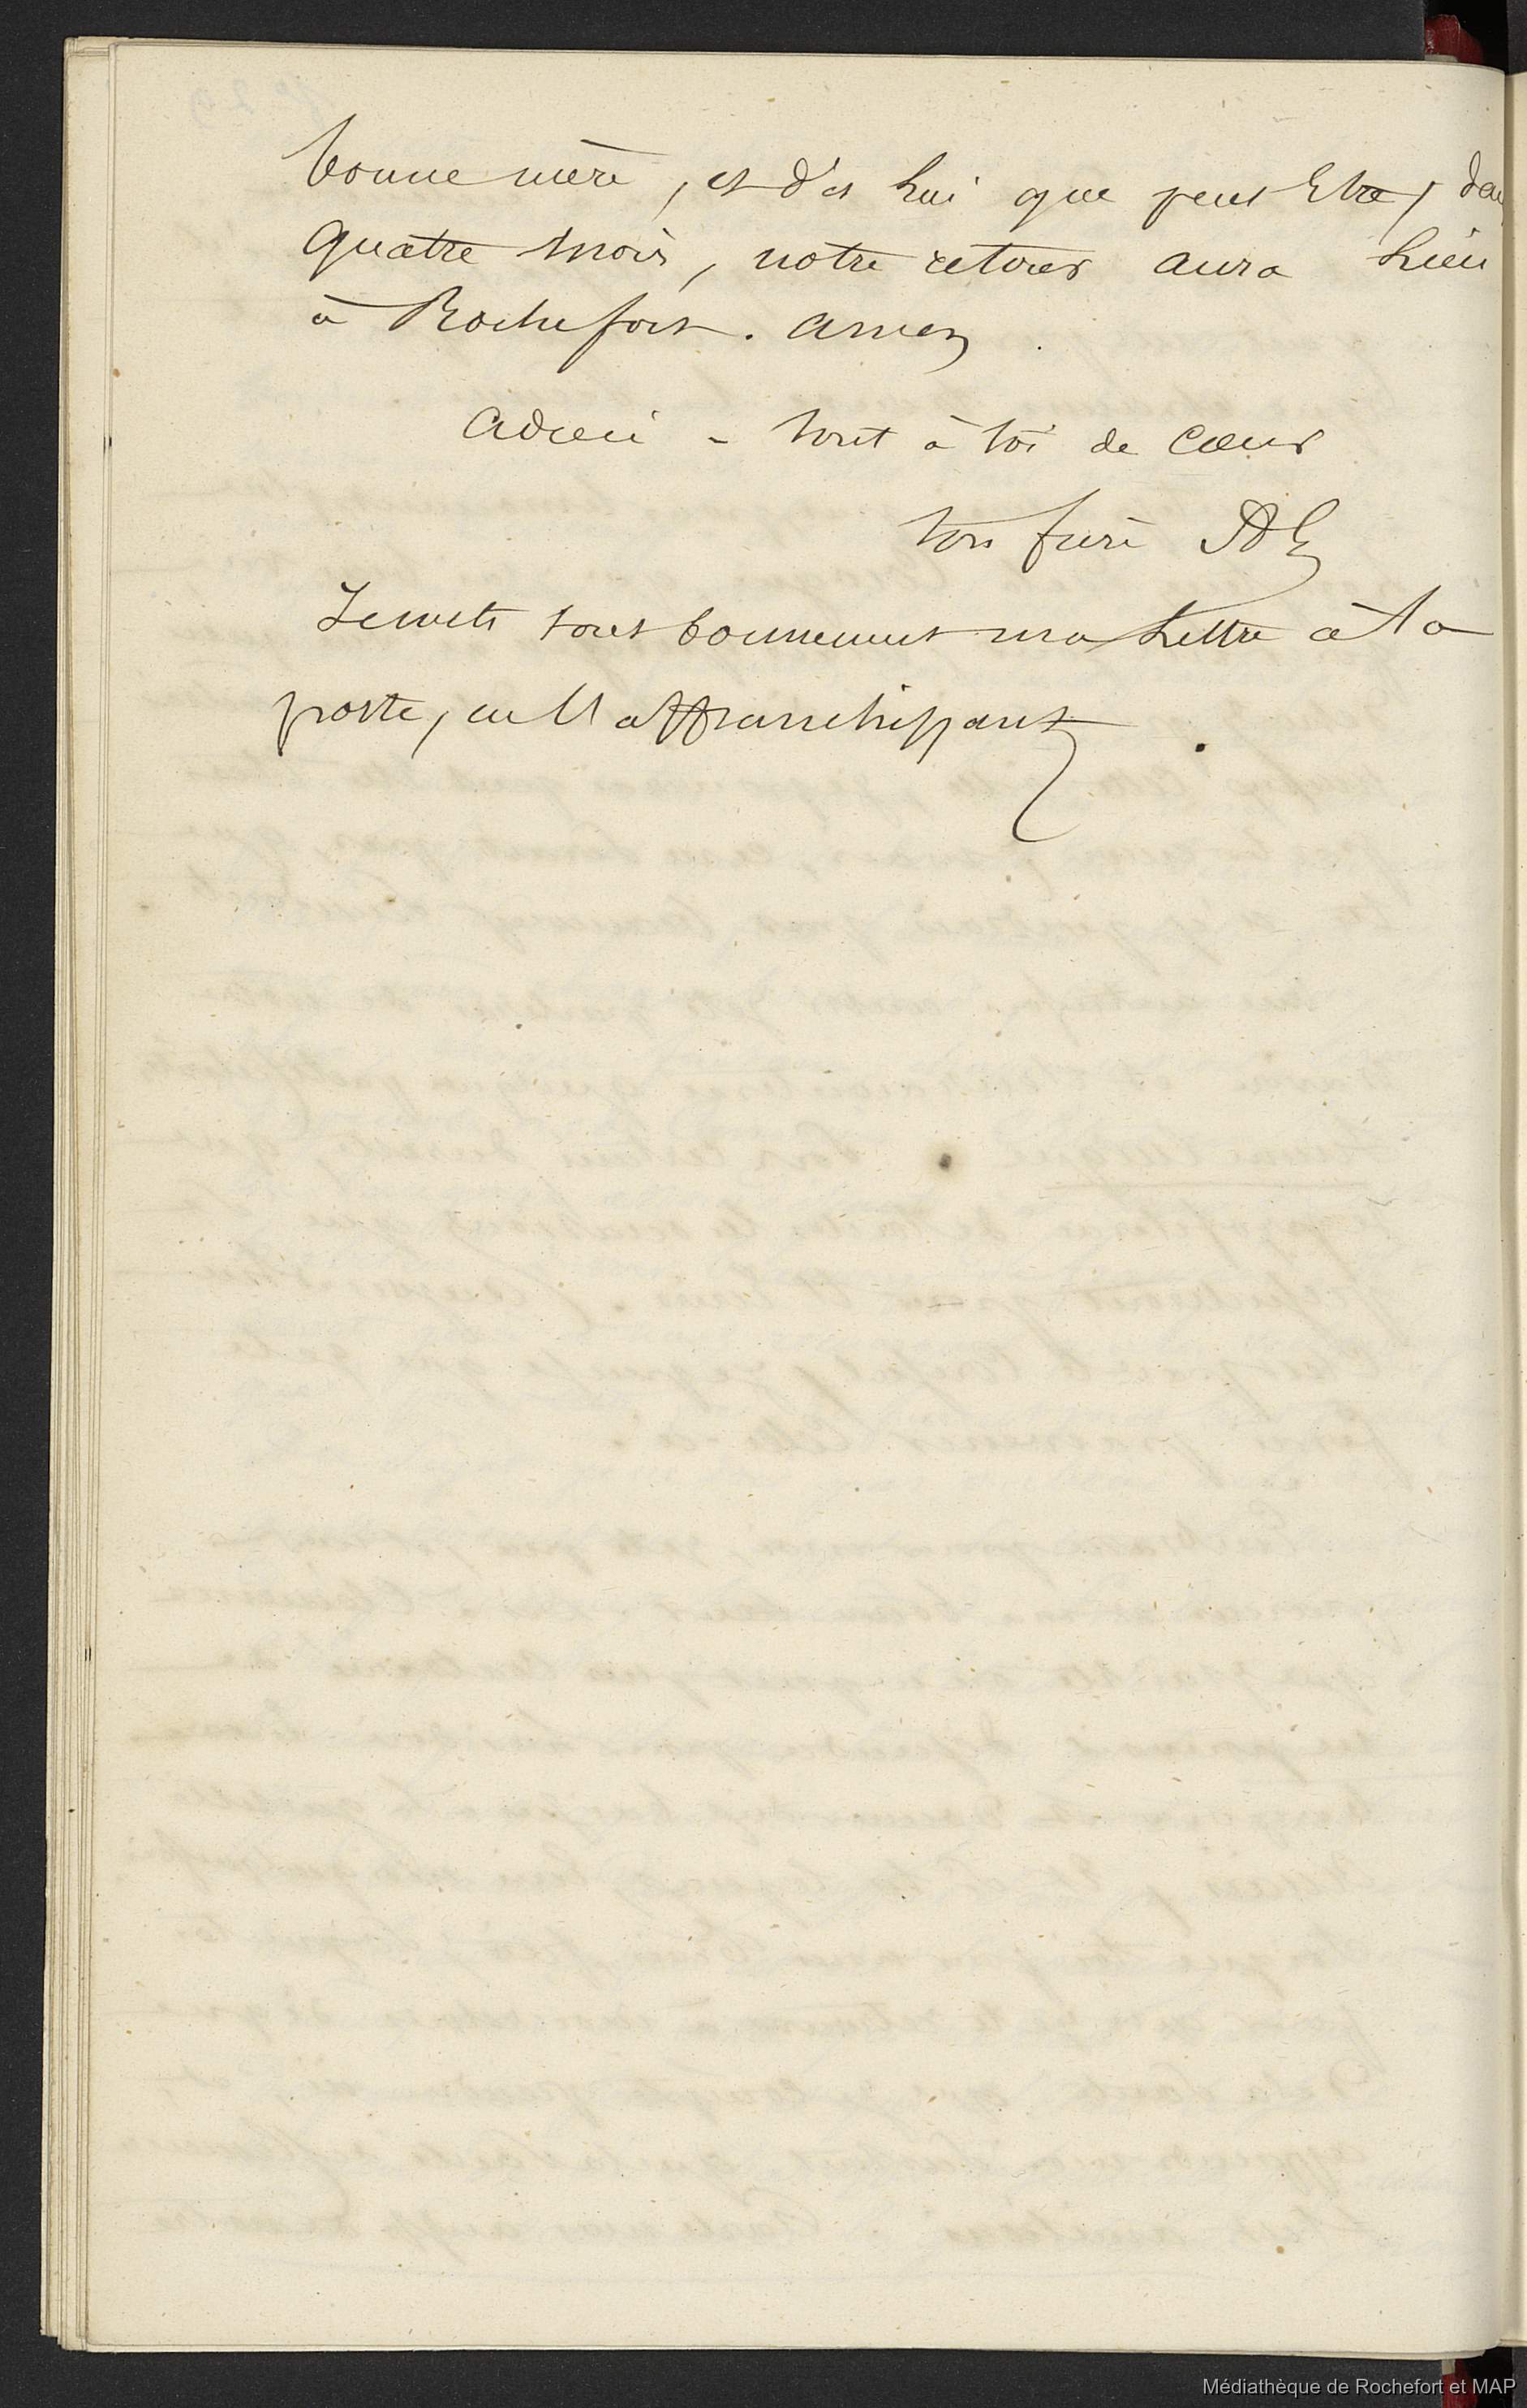 bonne mère, et dis lui que peut être, dans
quatre mois, notre retour aura lieu
à Rochefort. amen.
adieu - tout à toi de cœur
ton frère
Je mets tout bonnement ma lettre à la
poste, en l'affranchissant.
Médiathèque de Rochefort et MAP